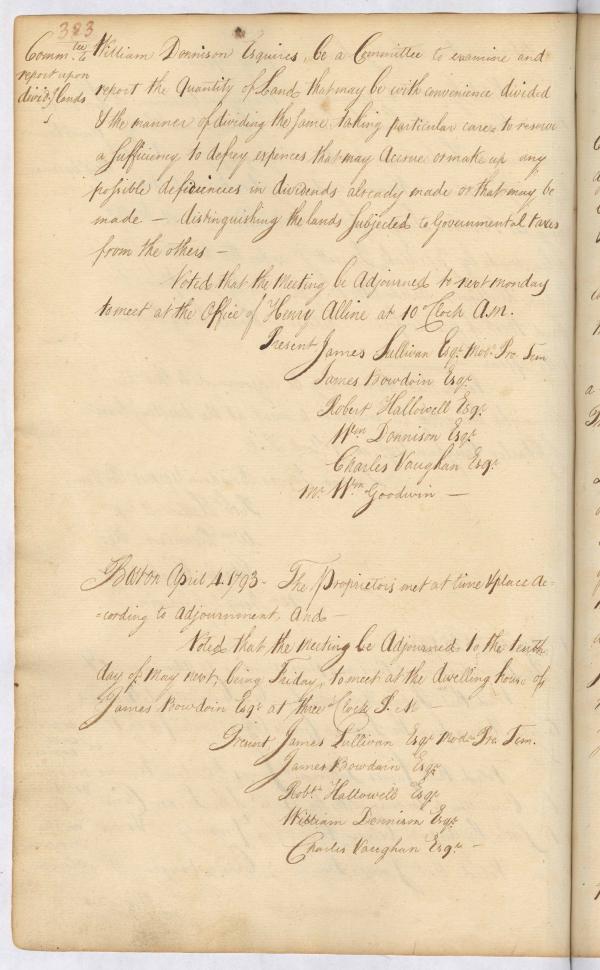 323
Comm.tee to
report upon
divid.g lands
William Donnison Esquires, be a Committee to examine and
report the Quantity of Land that may be with convenience divided
& the manner of dividing the same, taking particular care to reserve
a sufficiency to defrey expences that may Accrue or make up any
possible deficiencies in dividends already made or that may be
made — distinguishing the lands subjected to Governmental taxes
from the others —
Voted that the Meeting be Adjourned to next monday
to meet at the Office of Henry Alline at 10 oClock A.M.
Present James Sullivan Esqr. Modr. Pro. Tem
James Bowdoin Esqr.
Robert Hallowell Esqr.
Wm. Donnison Esqr.
Charles Vaughan Esqr.
Mr. Wm. Goodwin —
Boston April 4. 1793 — The Proprietors met at time & place Ac=
=cording to adjournment, And —
Voted that the Meeting be Adjourned to the tenth
day of May next, being Friday, to meet at the dwelling house of
James Bowdoin Esqr. at three oClock P.M —
Present James Sullivan Esqr. Modr. Pro. Tem.
James Bowdoin Esqr.
Robt. Hallowell Esqr.
William Dennison Esqr.
Charles Vaughan Esqr. —